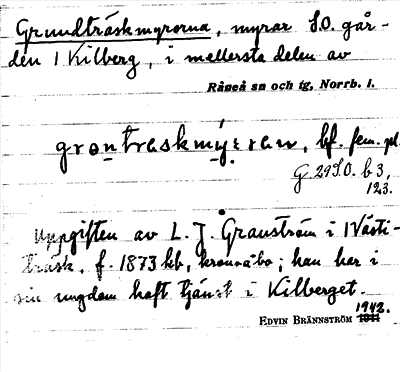 Grundträskmyrorna, myrar S.O. går-
den 1 Kilberg, i mellersta delen av
Råneå sn och tg, Norrb. l.
grontraskmy:ran, bf. fem. pl.
G 29 S.O. b 3,
123.
Uppgiften av L. J. Granström i 1 Västi-
träsk, f. 1873 hb, kronoåbo; han har i
sin ungdom haft tjänst i Kilberget.
1942.
EDVIN BRÄNNSTRÖM 1941